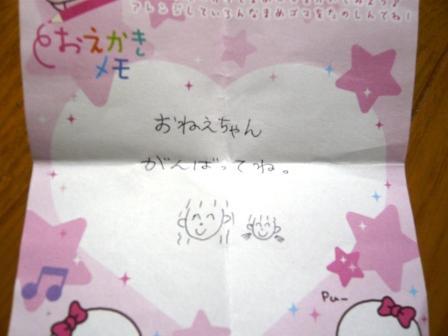 アレンジしていろんなまめゴマをたのしんでね!
おえかき
メモ
おねえちゃん
がんばってね。
Pu-